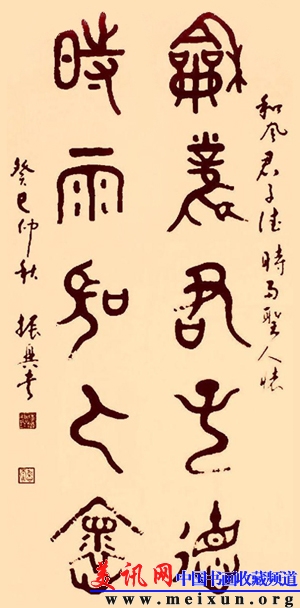 和風君子德 時雨聖人懷
龢風君子德
時雨人
癸巳仲秋 振興書
美讯网 中国书画收藏频道
www.meixun.org